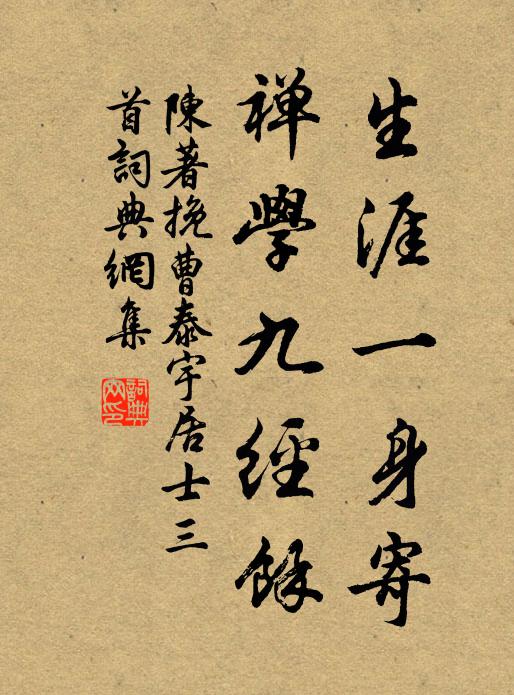 生涯一身寄
禪學九經餘
陳著挽曹泰宇居士三
首詞典網集
詞典
网印